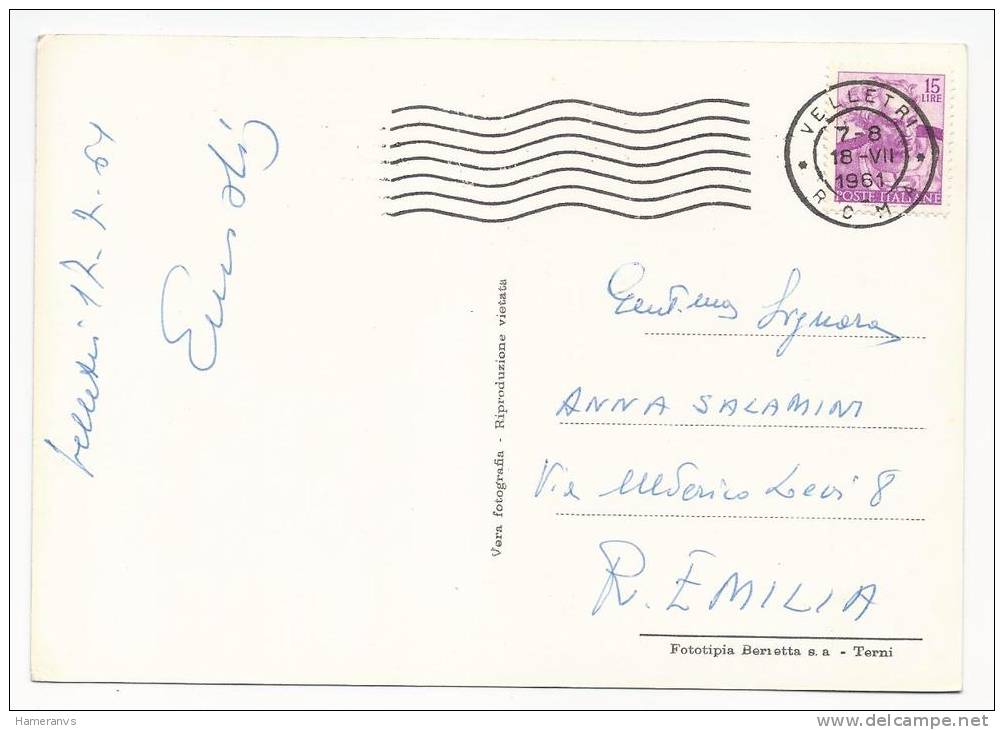 Velletri 17-7-61
15
LIRE
POSTE ITALIANE
VELLETRI
7-8
18-VII
1961
ROMA
Gent.ma Signora
ANNA SALAMINI
Via Levi 8
R. EMILIA
Vera fotografia - Riproduzione vietata
Fototipia Berretta s. a - Terni
Hameranvs
www.delcampe.net